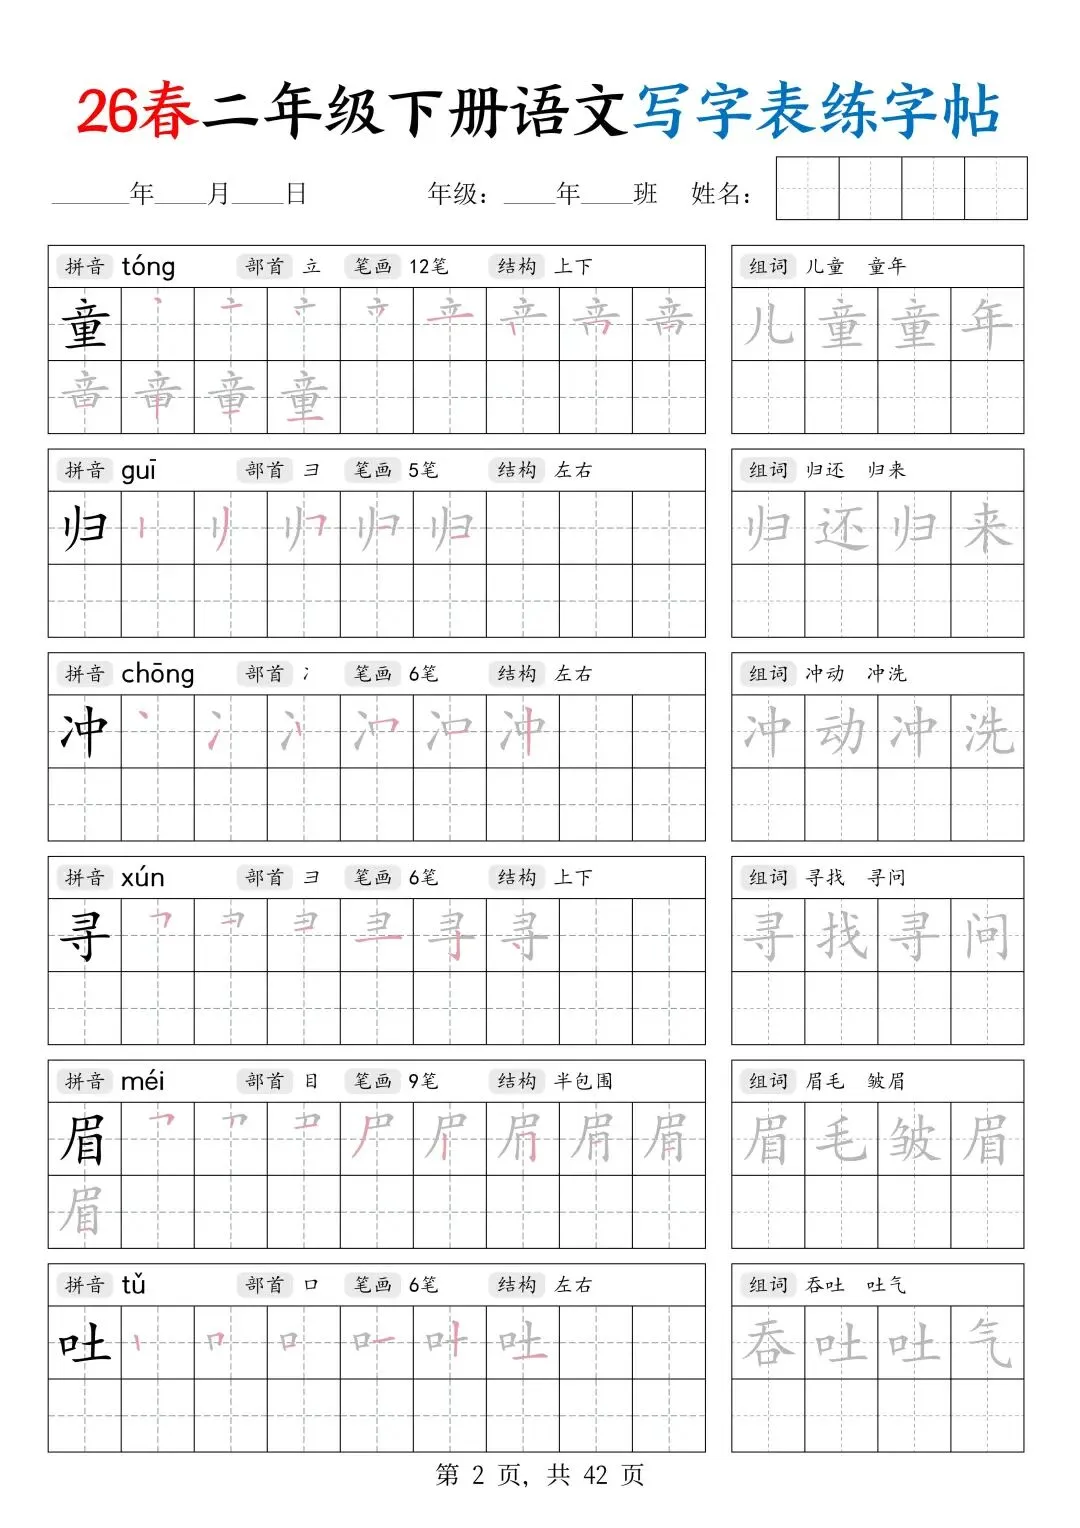 26春二年级下册语文写字表练字帖
______年____月____日 年级：____年____班 姓名：
拼音 tóng 部首 立 笔画 12笔 结构 上下
组词 儿童 童年
童
儿童童年
拼音 guī 部首 彐 笔画 5笔 结构 左右
组词 归还 归来
归
归还归来
拼音 chōng 部首 冫 笔画 6笔 结构 左右
组词 冲动 冲洗
冲
冲动冲洗
拼音 xún 部首 彐 笔画 6笔 结构 上下
组词 寻找 寻问
寻
寻找寻问
拼音 méi 部首 目 笔画 9笔 结构 半包围
组词 眉毛 皱眉
眉
眉毛皱眉
拼音 tǔ 部首 口 笔画 6笔 结构 左右
组词 吞吐 吐气
吐
吞吐吐气
第 2 页，共 42 页